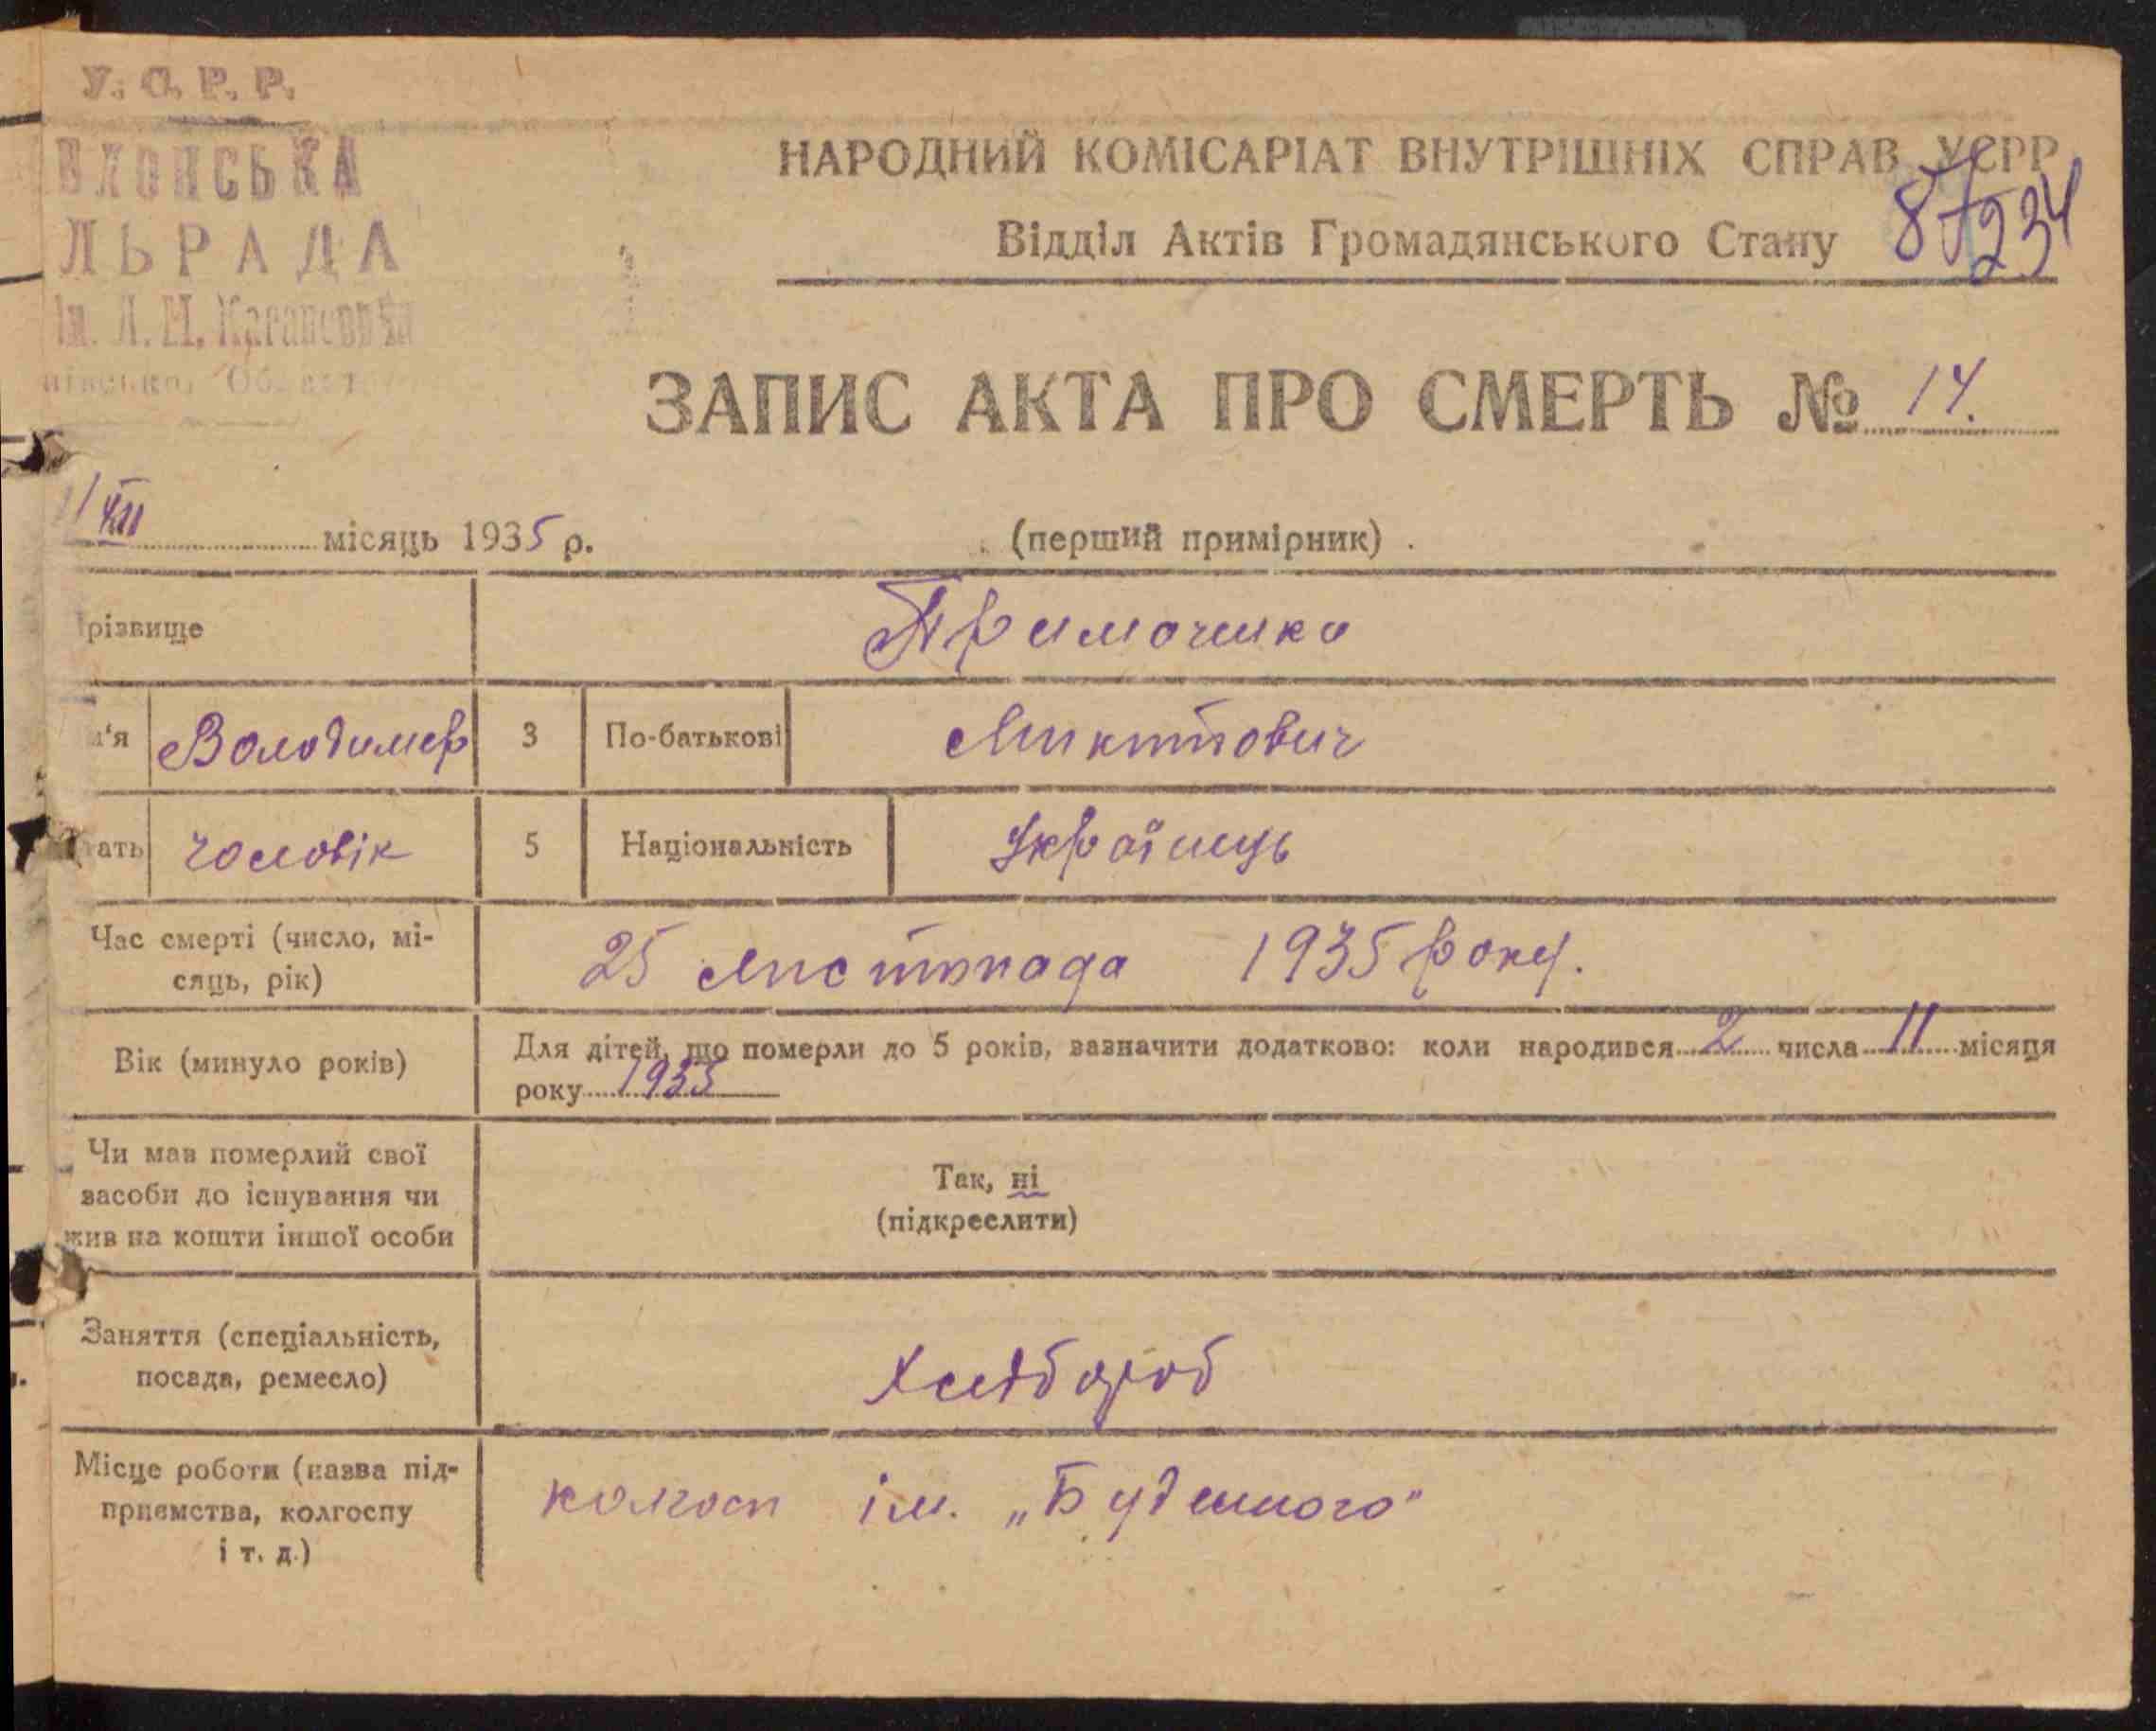 У. С. Р. Р.
ЛЬРАДА
Ім. Л. М. Кагановича
НАРОДНИЙ КОМІСАРІАТ ВНУТРІШНІХ СПРАВ УСРР
Відділ Актів Громадянського Стану
234
ЗАПИС АКТА ПРО СМЕРТЬ № 14.
1/XII місяць 1935 р.
(перший примірник)
різвище
Примоченко
м'я Володимер 3 По-батькові Микитович
ать чоловік 5 Національність Українець
Час смерті (число, мі-
сяць, рік)
25 Листопада 1935 року.
Вік (минуло років)
Для дітей, що померли до 5 років, зазначити додатково: коли народився 2 числа 11 місяця
року 1935
Чи мав померлий свої
засоби до існування чи
жив на кошти іншої особи
Так, ні
(підкреслити)
Заняття (спеціальність,
посада, ремесло)
Хлібороб
Місце роботи (назва під-
приємства, колгоспу
і т. д.)
колгосп ім. „Буденного"